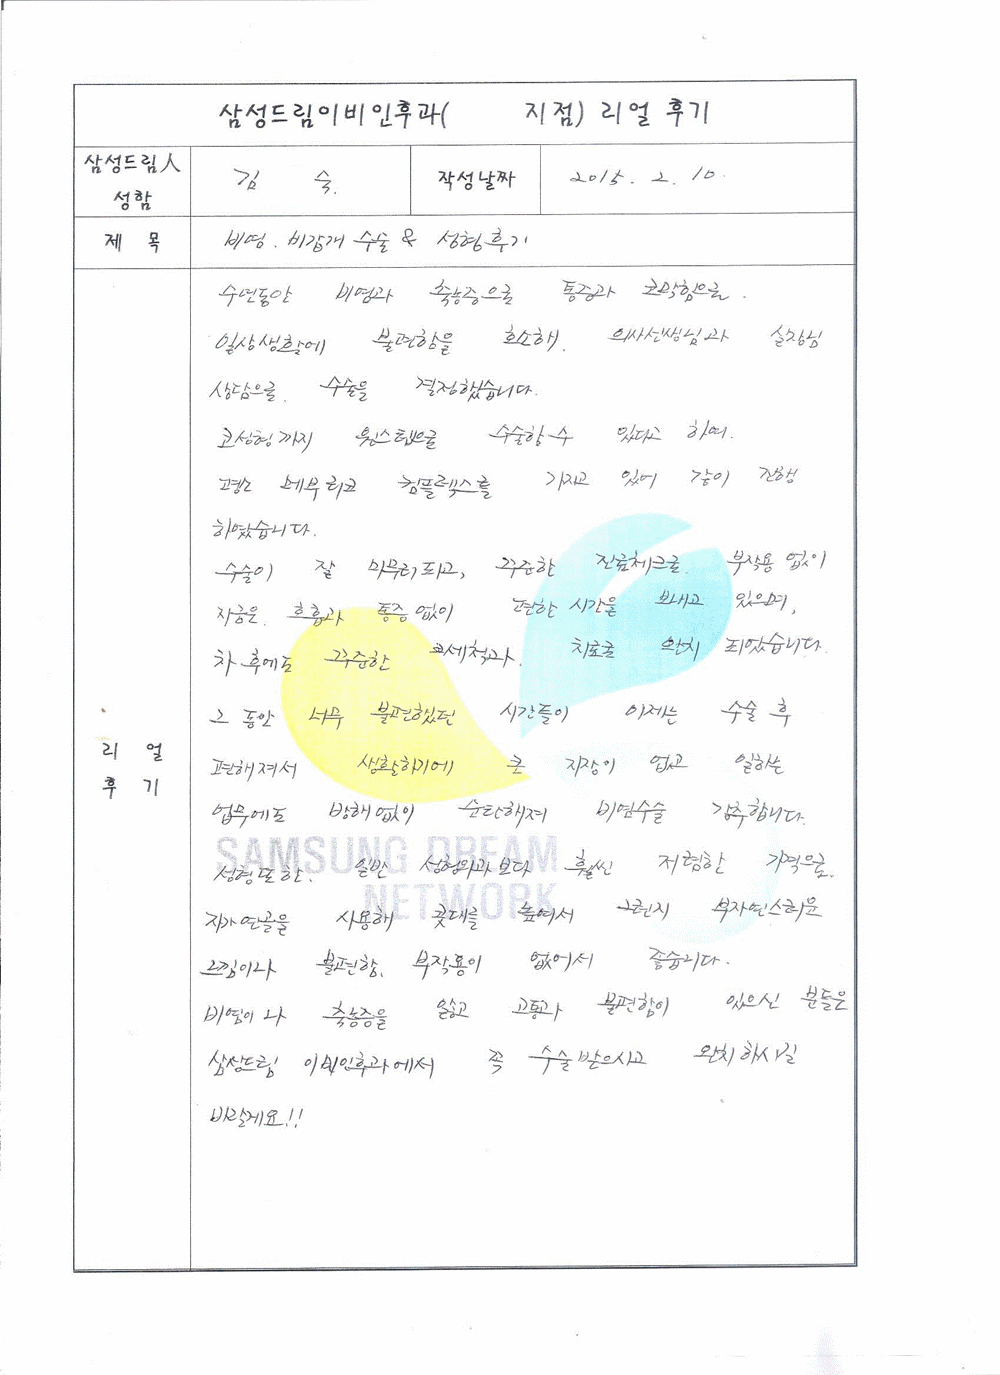 삼성드림이비인후과( 지점) 리얼 후기
삼성드림人 성함
김 숙.
작성날짜
2015. 2. 10.
제 목
비염. 비갑개 수술 & 성형후기
리 얼 후 기
수년동안 비염과 축농증으로 통증과 코막힘으로.
일상생활에 불편함을 호소해. 의사선생님과 실장님
상담으로. 수술을 결정했습니다.
코성형까지 원스텝으로 수술할 수 있다고 하여.
평소 메부리코 컴플렉스를 가지고 있어 같이 진행
하였습니다.
수술이 잘 마무리되고, 꾸준한 진료체크로. 부작용 없이
지금은. 호흡과 통증 없이 편한 시간을 보내고 있으며,
차 후에도 꾸준한 코세척과. 치료로 완치 되었습니다.
그 동안 너무 불편했던 시간들이 이제는 수술 후
편해져서 생활하기에 큰 지장이 없고 일하는
업무에도 방해없이 순탄해져 비염수술 강추합니다.
SAMSUNG DREAM
성형또한. 일반 성형외과보다 훨씬 저렴한 가격으로.
NETWORK
자가연골을 사용해 콧대를 높여서 그런지 부자연스러운
느낌이나 불편함. 부작용이 없어서 좋습니다.
비염이나 축농증을 앓고 고통과 불편함이 있으신 분들은
삼성드림 이비인후과에서 꼭 수술받으시고 완치하시길
바랄게요!!